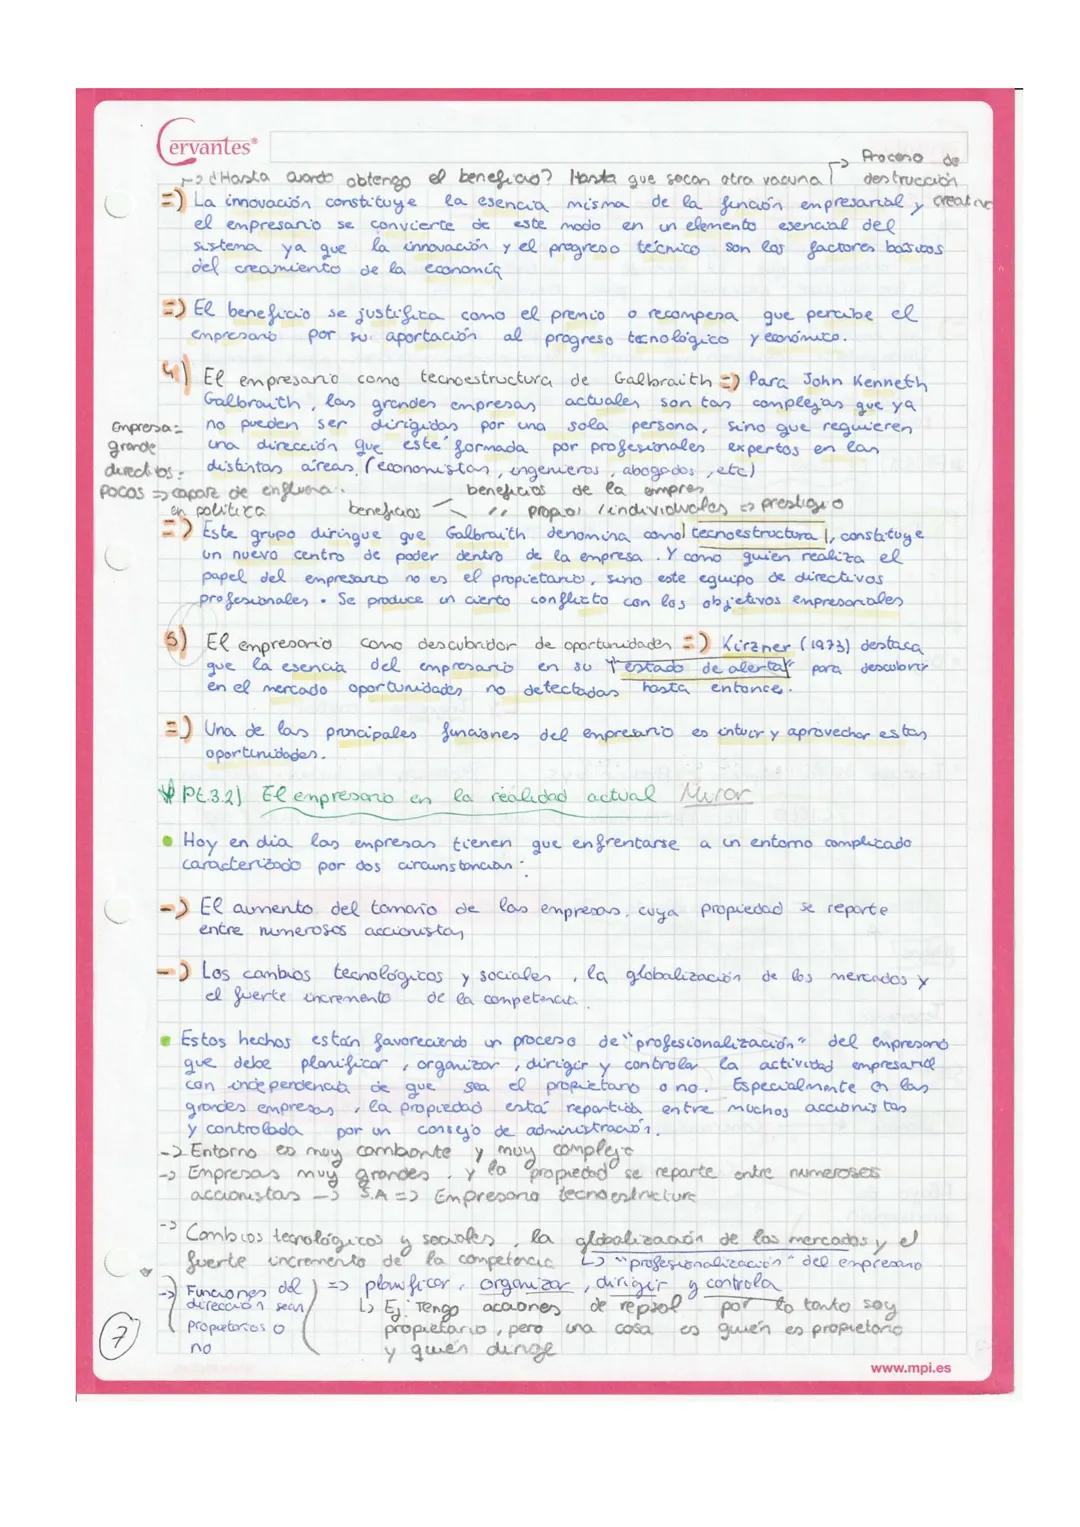 Cervantes®
Proceso de
→ ¿Hasta cuando obtengo el beneficio? Hasta que sacan otra vacuna destrucción
=) La innovación constituye la esencia misma de la función empresarial y creativa
el empresario se convierte de este modo en un elemento esencial del
sistema ya que la innovación y el progreso técnico son los factores básicos
del crecimiento de la economía
=) El beneficio se justifica como el premio o recompesa que percibe el
empresario por su aportación al progreso tecnológico y económico.
4) El empresario como tecnoestructura de Galbraith =) Para John Kenneth
Galbraith, las grandes empresas actuales son tas complejas que ya
Empresa= no pueden ser dirigidas por una sola persona, sino que requieren
grande una dirección que esté formada por profesionales expertos en las
directivos= distintas áreas (economistas, ingenieros, abogados, etc)
pocos => capaz de en beneficios de la empres
en política beneficios " propios / individuales => prestigio
=) Este grupo diringue que Galbraith denomina como tecnoestructura, constituye
un nuevo centro de poder dentro de la empresa. Y como quien realiza el
papel del empresario no es el propietario, sino este equipo de directivos
profesionales. Se produce un cierto conflicto con los objetivos empresariales
5) El empresario como descubridor de oportunidades =) Kirzner (1973) destaca
que la esencia del empresario en su "estado de alerta" para descubrir
en el mercado oportunidades no detectadas hasta entonce.
=) Una de las principales funciones del empresario es intuir y aprovechar estas
oportunidades.
PE.3.2) El empresario en la realidad actual Mirar
• Hoy en dia las empresas tienen que enfrentarse a un entorno complicado
caracterizado por dos circunstancias:
-) El aumento del tamaño de las empresas, cuya propiedad se reparte
entre numerosos accionistas
-) Los cambios tecnológicos y sociales, la globalización de los mercados y
el fuerte incremento de la competencia.
• Estos hechos están favoreciendo un proceso de "profesionalización" del empresario
que debe planificar, organizar, dirigir y controlar la actividad empresarial
con independencia de que sea el propietario o no. Especialmente en las
grandes empresas, la propiedad está repartida entre muchos accionistas
y controlada por un consejo de administración.
-> Entorno es muy cambiante y muy complejo
-> Empresas muy grandes, y la propiedad se reparte entre numerosos
accionistas -> S.A => Empresario tecnoestructura
-> Cambios tecnológicos y sociales, la globalización de los mercados y el
fuerte incremento de la competencia ↳ "profesionalización" del empresario
-> Funciones del => planificar, organizar, dirigir y controla
dirección sean ↳ Ej: Tengo acciones de repsol por lo tanto soy
propietarios o propietario, pero una cosa es quién es propietario
no y quién dirige
7
www.mpi.es